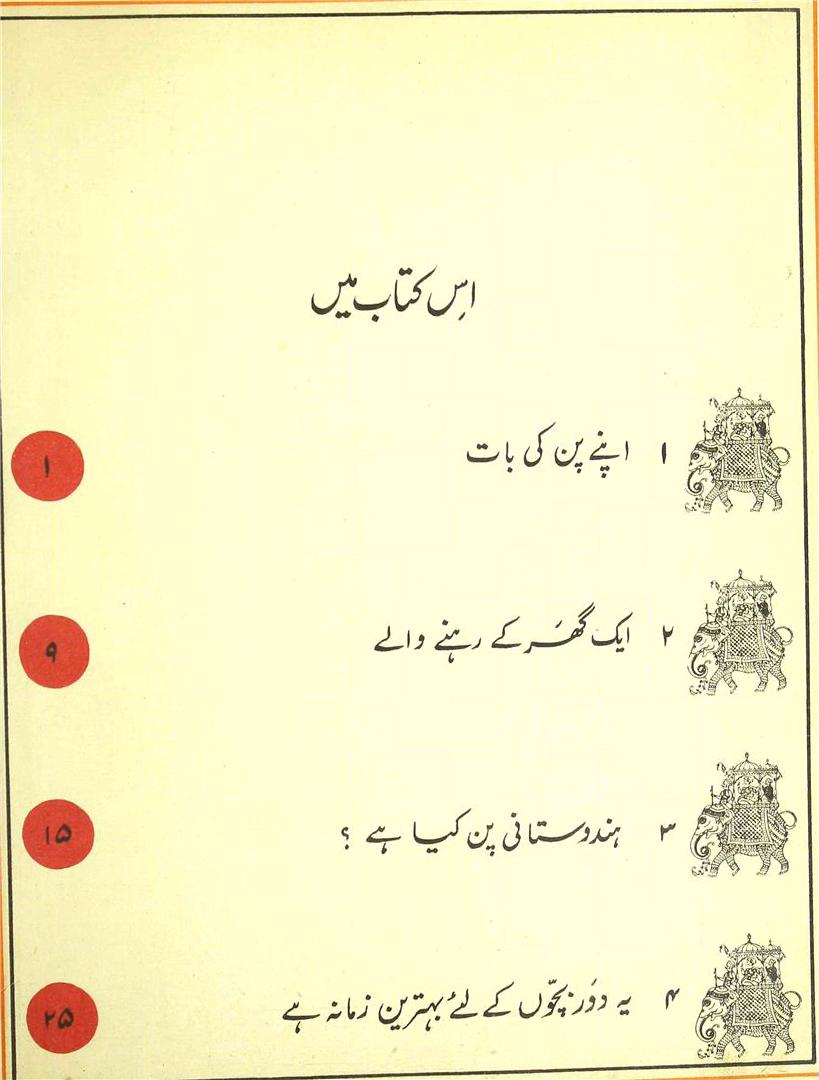 اِس کتاب میں
۱ اپنے پن کی بات ۱
۲ ایک گھَر کے رہنے والے ۹
۳ ہندوستانی پن کیا ہے ؟ ۱۵
۴ یہ دَور بچّوں کے لئے بہترین زمانہ ہے ۲۵